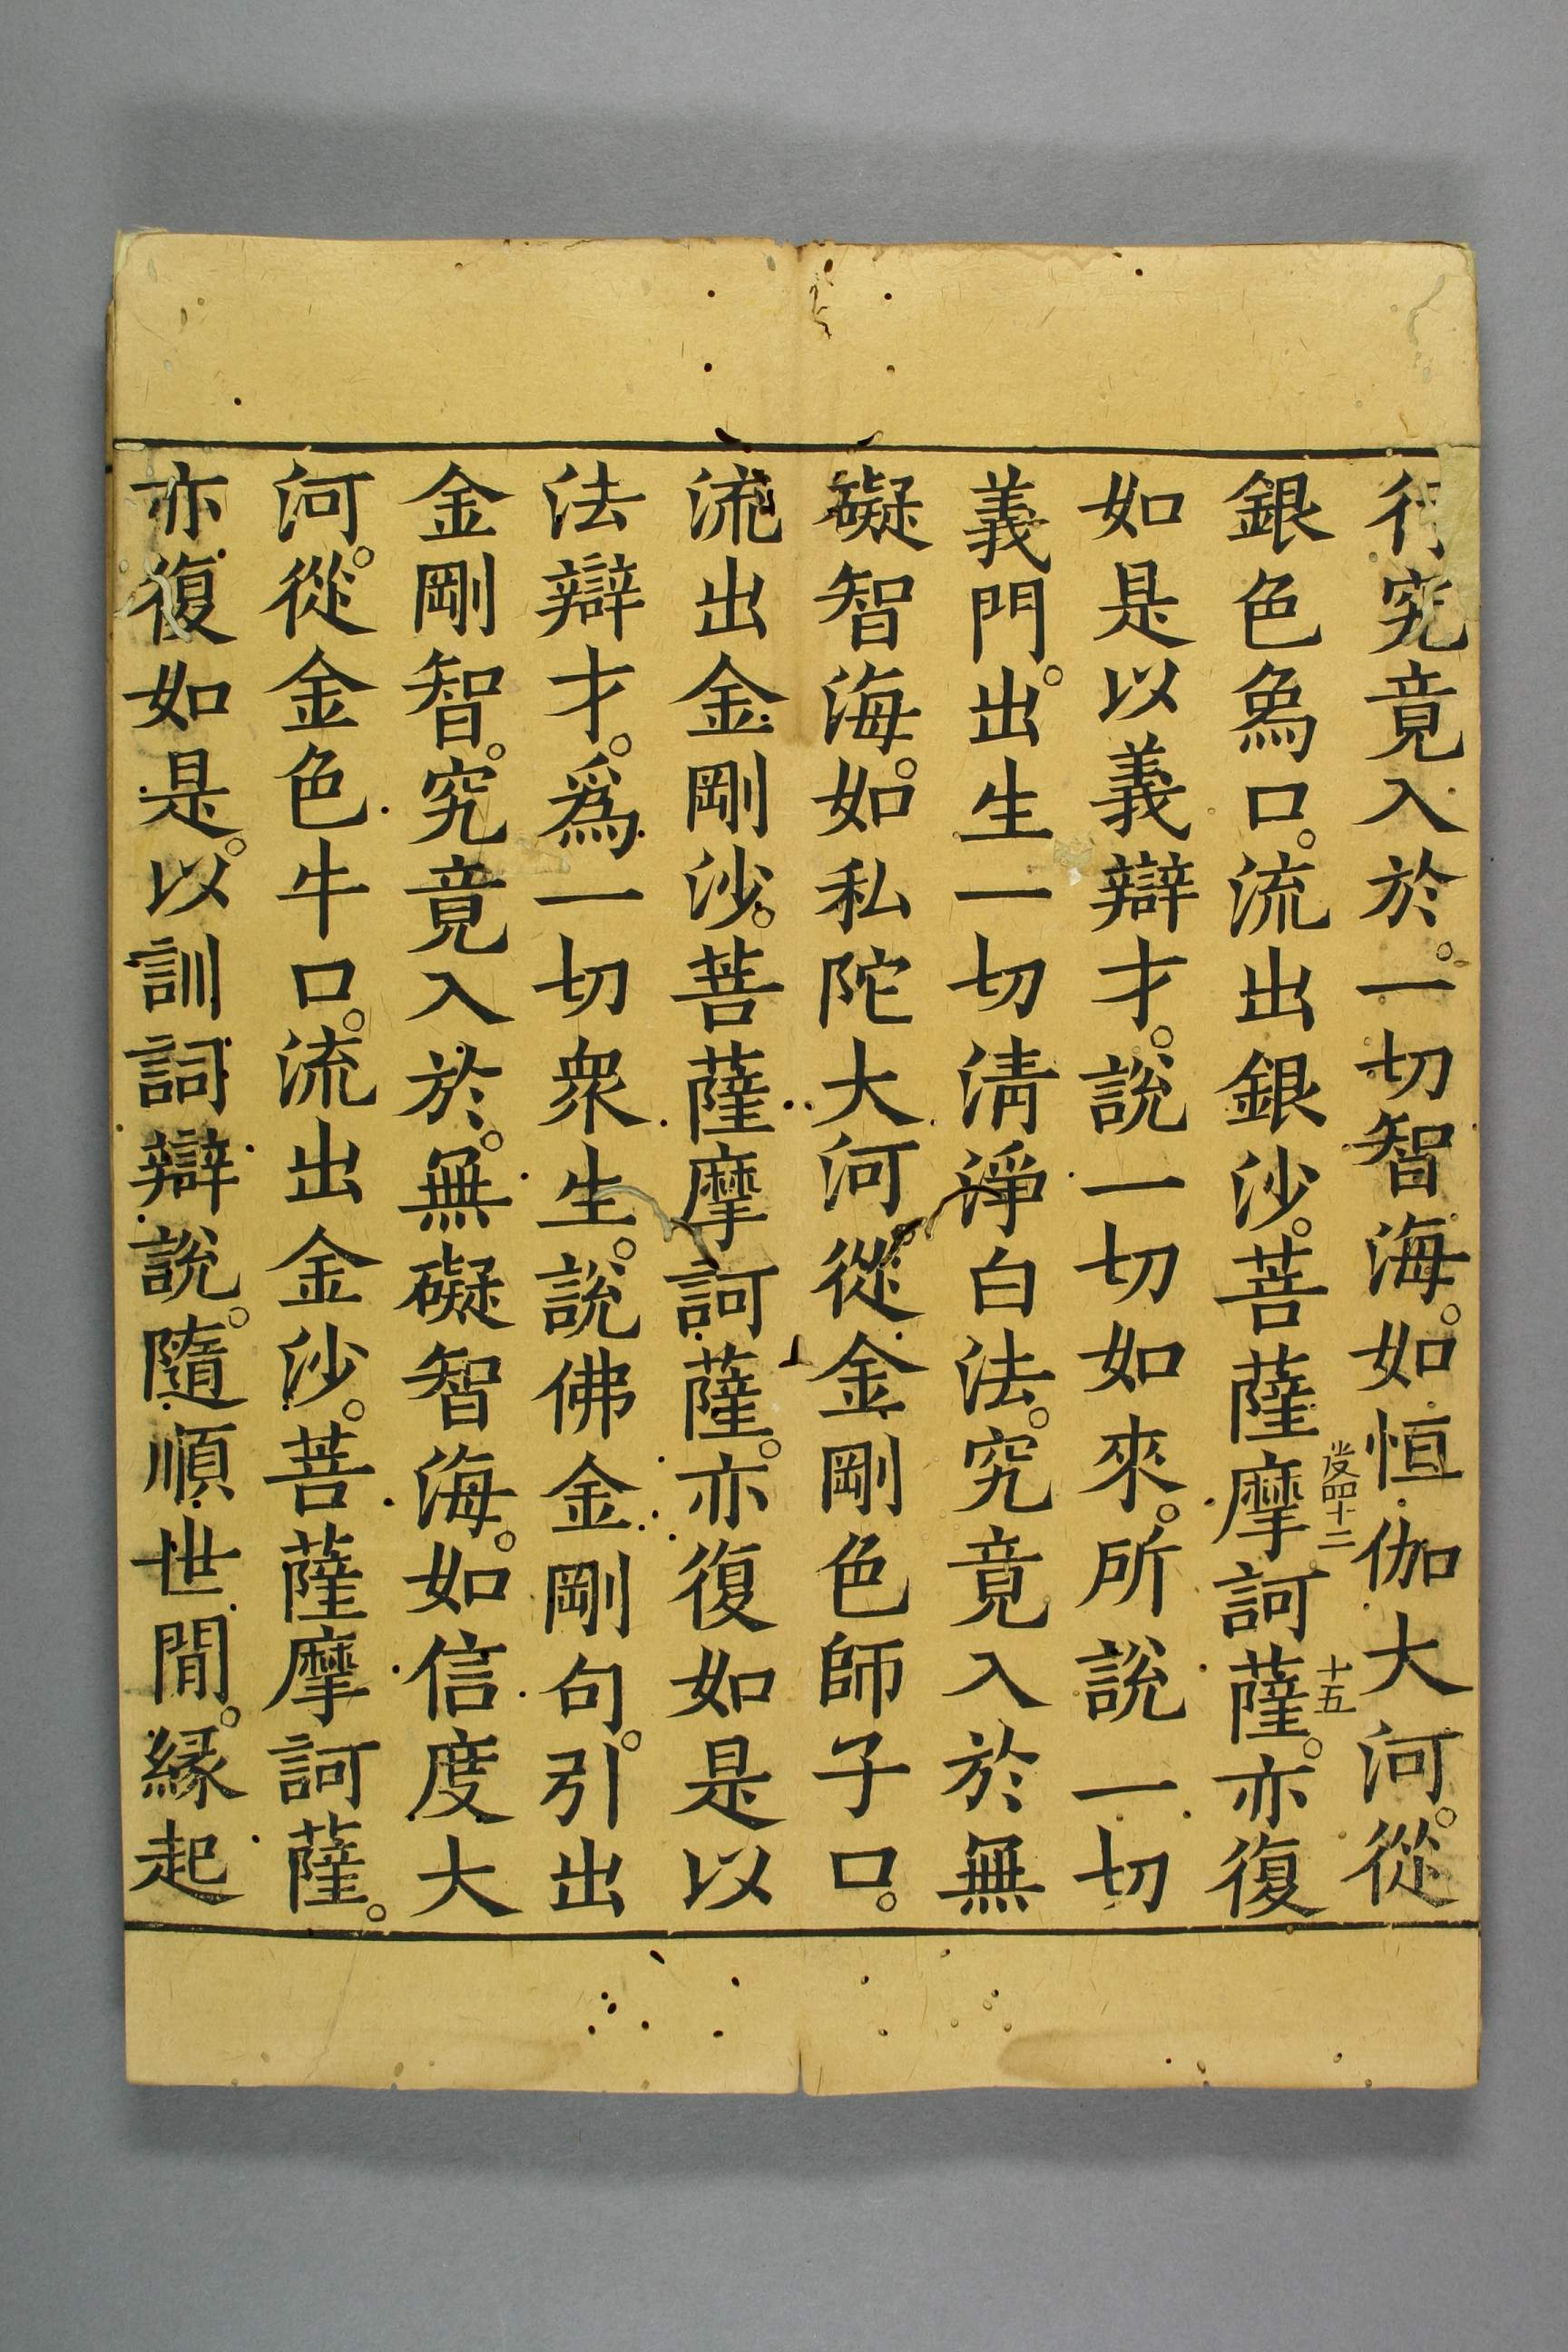 行究竟入於。一切智海。如恒伽大河。從
銀色象口。流出銀沙。菩薩摩訶薩。亦復
如是以義辯才。說一切如來。所說一切
義門。出生一切清淨白法。究竟入於無
礙智海。如私陀大河從金剛色師子口。
流出金剛沙。菩薩摩訶薩。亦復如是以
法辯才。爲一切衆生。說佛金剛句。引出
金剛智。究竟入於。無礙智海。如信度大
河。從金色牛口。流出金沙。菩薩摩訶薩。
亦復如是。以訓詞辯說。隨順世間。緣起
四十二
十五